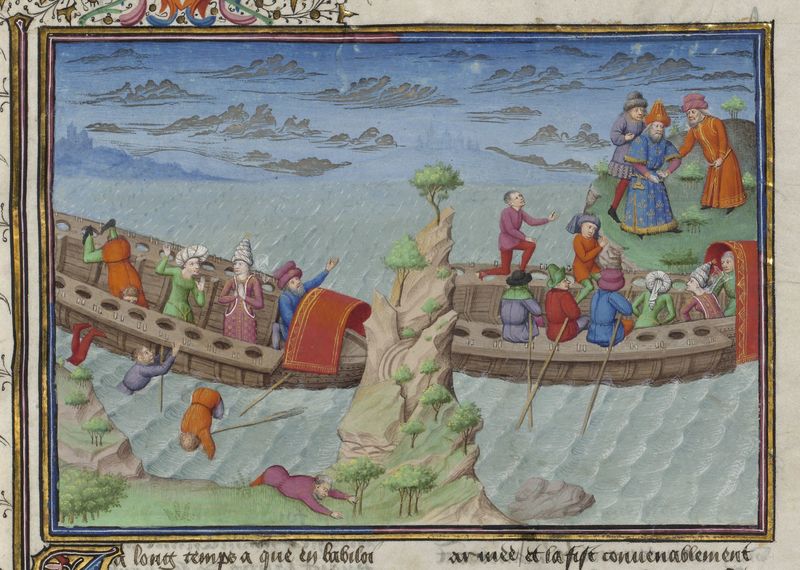 Ja long temps a que en babiloi
armee et la fist convenablement